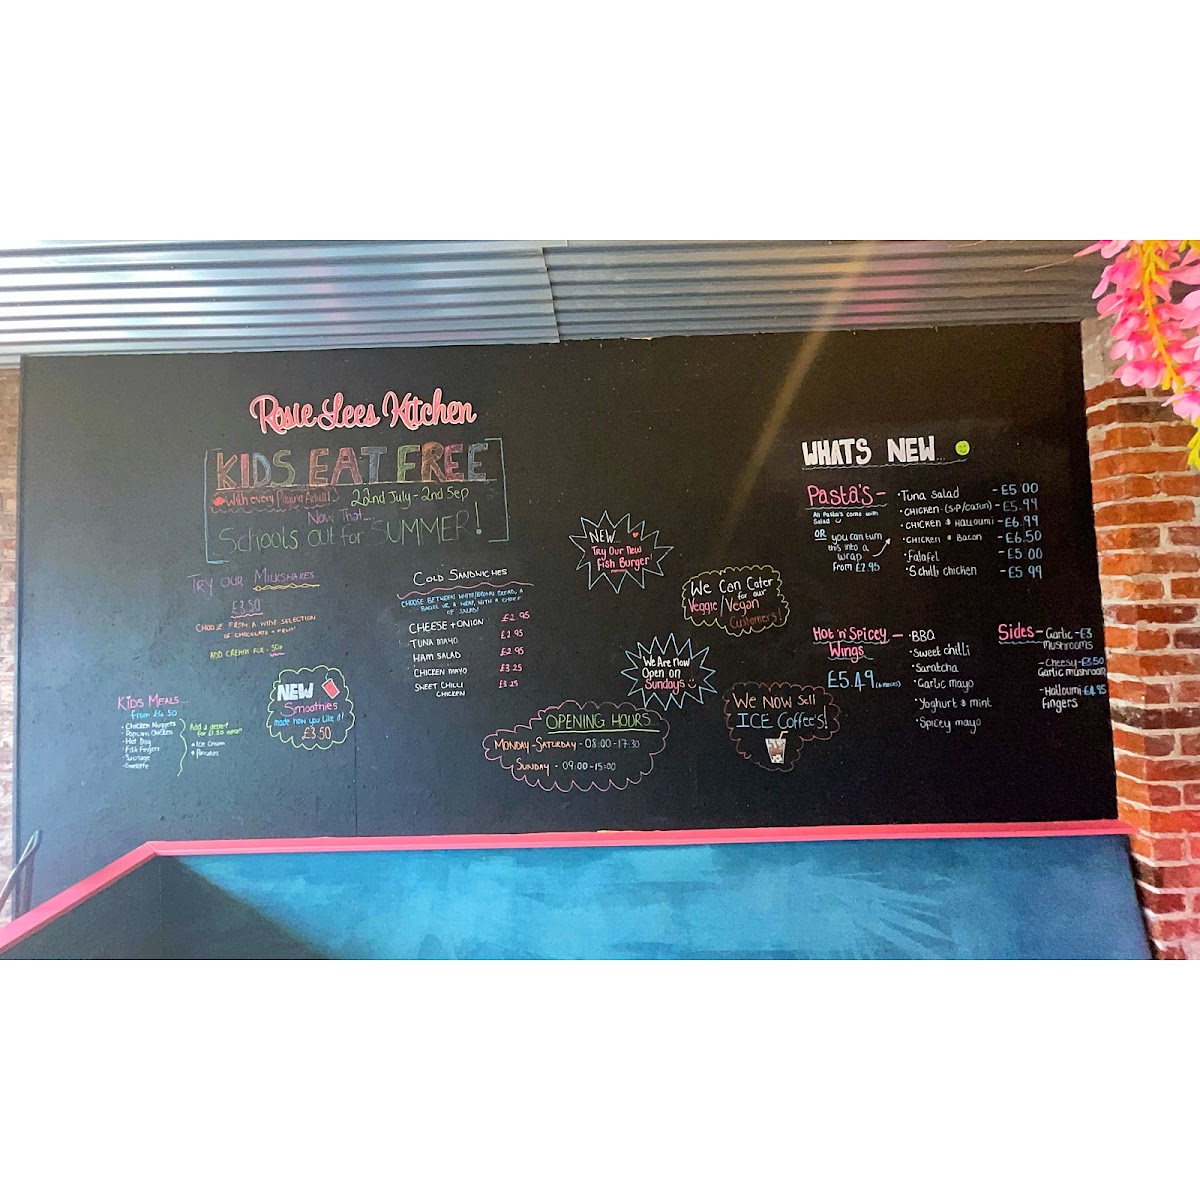 Rosie Lees Kitchen
KIDS EAT FREE
With every Paying Adult!
22nd July - 2nd Sep
Now That...
Schools out for SUMMER!
TRY OUR MILKSHAKES
£3.50
CHOOSE FROM A WIDE SELECTION
OF CHOCOLATE + FRUIT!
ADD CREAM FOR - 50p
KIDS MEALS...
from £4.50
• Chicken Nuggets
• Popcorn Chicken
• Hot Dog
• Fish Fingers
• Sausage
• Omelette
Add a dessert
for £1.50 extra!!
• Ice Cream
• Pancakes
NEW
Smoothies
made how you like it!
£3.50
COLD SANDWICHES
CHOOSE BETWEEN WHITE/BROWN BREAD, A
BAGEL OR A WRAP, WITH A CHOICE
OF SALAD!
CHEESE + ONION £2.95
TUNA MAYO £2.95
HAM SALAD £2.95
CHICKEN MAYO £3.25
SWEET CHILLI
CHICKEN £3.25
NEW...
Try Our New
Fish Burger!
We Can Cater
for our
Veggie/Vegan
Customers!
We Are Now
Open on
Sundays
OPENING HOURS...
MONDAY - SATURDAY - 08:00 - 17:30
SUNDAY - 09:00 - 15:00
WE NOW Sell
ICE Coffee's!
WHATS NEW...
Pasta's -
All Pasta's come with
Salad
OR you can turn
this into a
wrap
from £2.95
• Tuna Salad - £5.00
• CHICKEN - (S+P/CAJUN) - £5.99
• CHICKEN & Halloumi - £6.99
• CHICKEN & Bacon - £6.50
• Falafel - £5.00
• S.chilli chicken - £5.99
Hot 'n' Spicey
Wings
£5.49
• BBQ
• Sweet chilli
• Saratcha
• Garlic mayo
• Yoghurt & mint
• Spicey mayo
Sides - Garlic - £3
mushrooms
- Cheesy - £3.50
Garlic mushroom
- Halloumi - £4.95
fingers